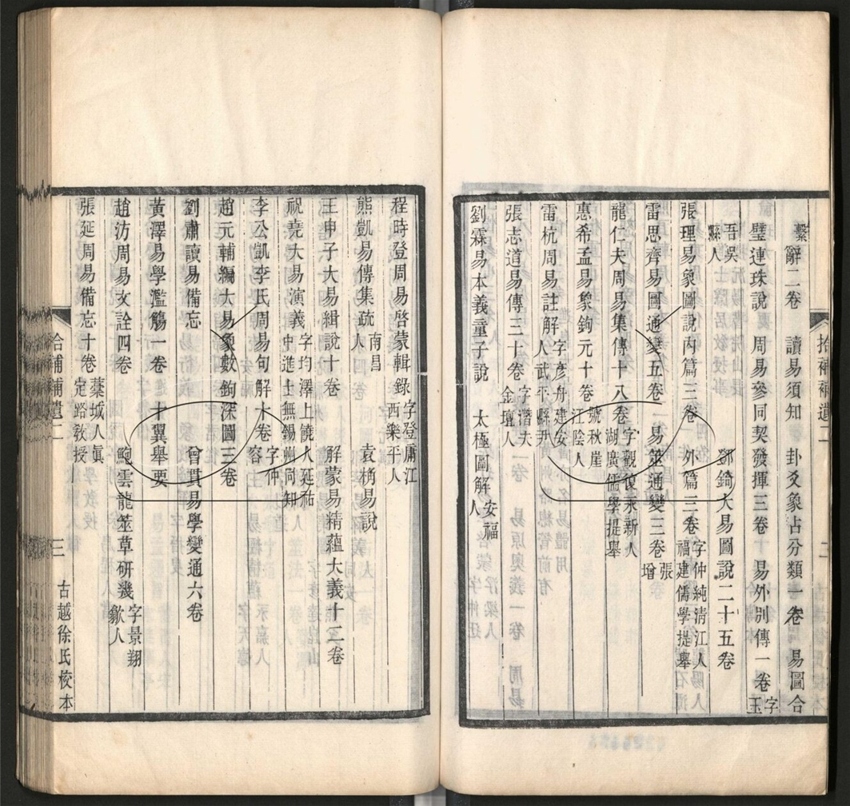 繫辭二卷　讀易須知　卦爻象占分類一卷　易圖合
璧連珠說　周易參同契發揮三卷　易外別傳一卷字玉
吾吳縣人　鄧錡大易圖說二十五卷
張理易象圖說內篇三卷　外篇三卷字仲純清江人福建儒學提舉
雷思齊易圖通變五卷　易筮通變三卷張增
龍仁夫周易集傳十八卷字觀復永新人湖廣儒學提舉
惠希孟易象鉤元十卷號秋崖江陰人
雷杭周易註解字彥舟建安人武平縣尹
張志道易傳三十卷字潛夫金壇人
劉霖易本義童子說　太極圖解安福人
程時登周易啓蒙輯錄字登庸江西樂平人
熊凱易傳集疏南昌人　袁桷易說
王申子大易緝說十卷　解蒙易精蘊大義十二卷
祝堯大易演義字均澤上饒人延祐中進士無錫州同知
李公凱李氏周易句解　卷字仲容
趙元輔編大易象數鉤深圖三卷
劉肅讀易備忘　曾貫易學變通六卷
黃澤易學濫觴一卷　十翼舉要
趙汸周易文詮四卷　鮑雲龍筮草研幾字景翔歙人
張延周易備忘十卷藁城人眞定路敎授
拾補補遺二
三
古越徐氏校本